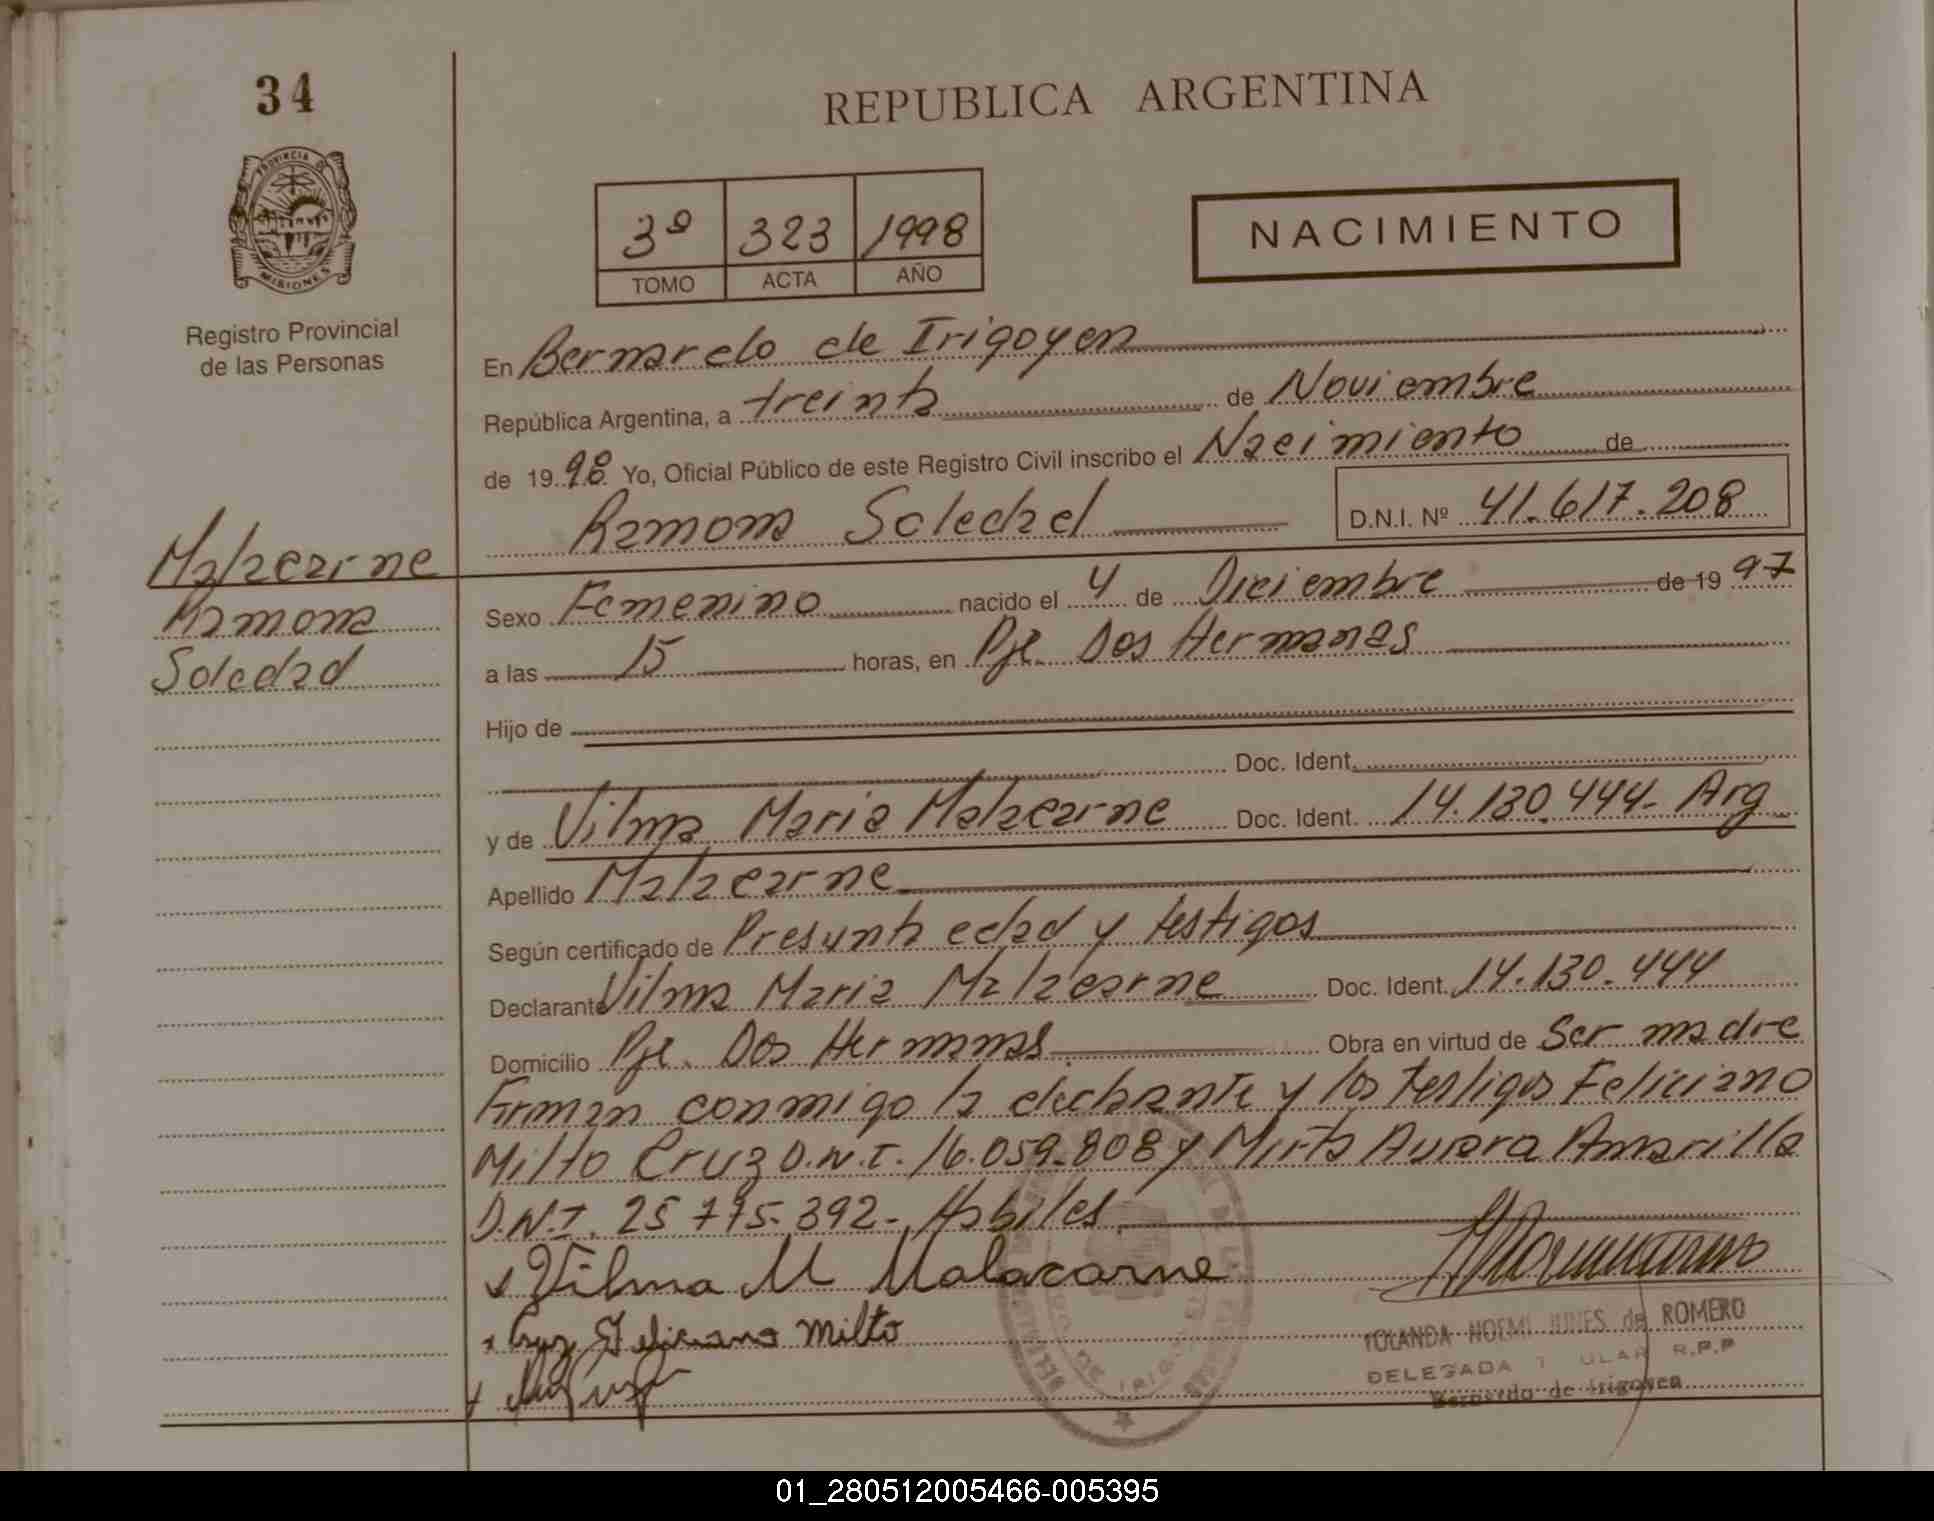 34
REPUBLICA ARGENTINA
PROVINCIA DE
MISIONES
3º 323 1998
TOMO ACTA AÑO
NACIMIENTO
Registro Provincial
de las Personas
En Bernardo de Irigoyen
República Argentina, a treinta de Noviembre
de 1998 Yo, Oficial Público de este Registro Civil inscribo el Nacimiento de
Ramona Soledad D.N.I. Nº 41.617.208
Malacarne
Ramona
Soledad
Sexo Femenino nacido el 4 de Diciembre de 1997
a las 15 horas, en Pje. Dos Hermanas
Hijo de
Doc. Ident.
y de Vilma Maria Malacarne Doc. Ident. 14.130.444- Arg
Apellido Malacarne
Según certificado de Presunta edad y testigos
Declarante Vilma Maria Malacarne Doc. Ident. 14.130.444
Domicilio Pje. Dos Hermanas Obra en virtud de Ser madre
Firman conmigo la declarante y los testigos Feliciano
Milto Cruz D.N.I. 16.059.808 y Mirta Aurora Amarilla
D.N.I. 25 775.392- Habiles
Vilma M Malacarne
Cruz Feliciano Milto
YOLANDA NOEMI de ROMERO
DELEGADA R.P.P
Bernardo de Irigoyen
01_280512005466-005395